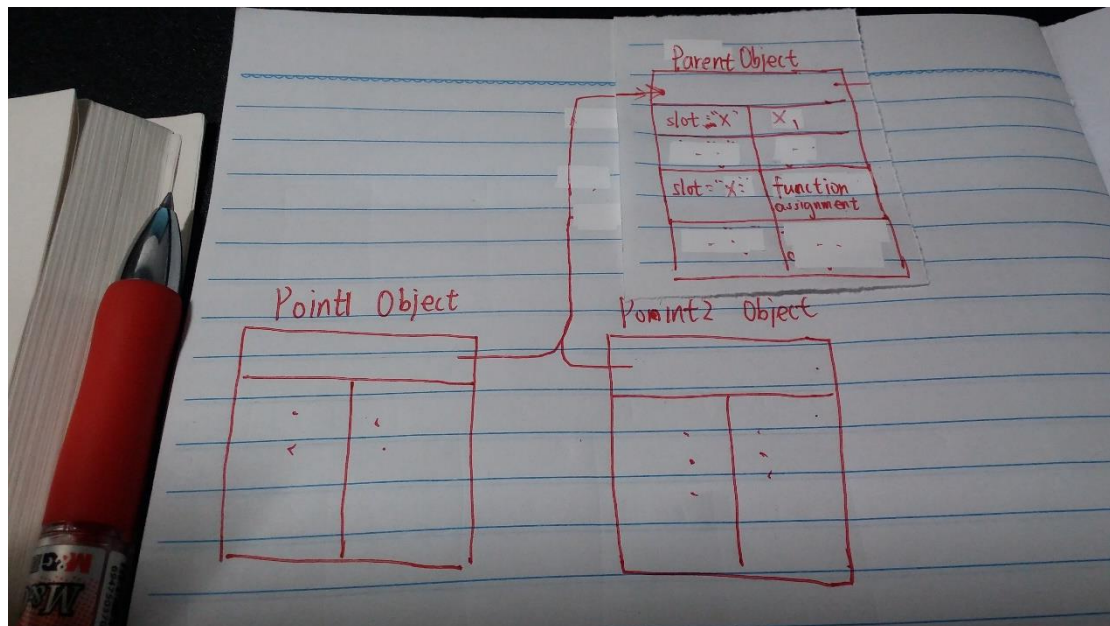 Parent Object
slot="x" x,
slot="x:" function
assignment
Point1 Object
Pomint2 Object
M&G